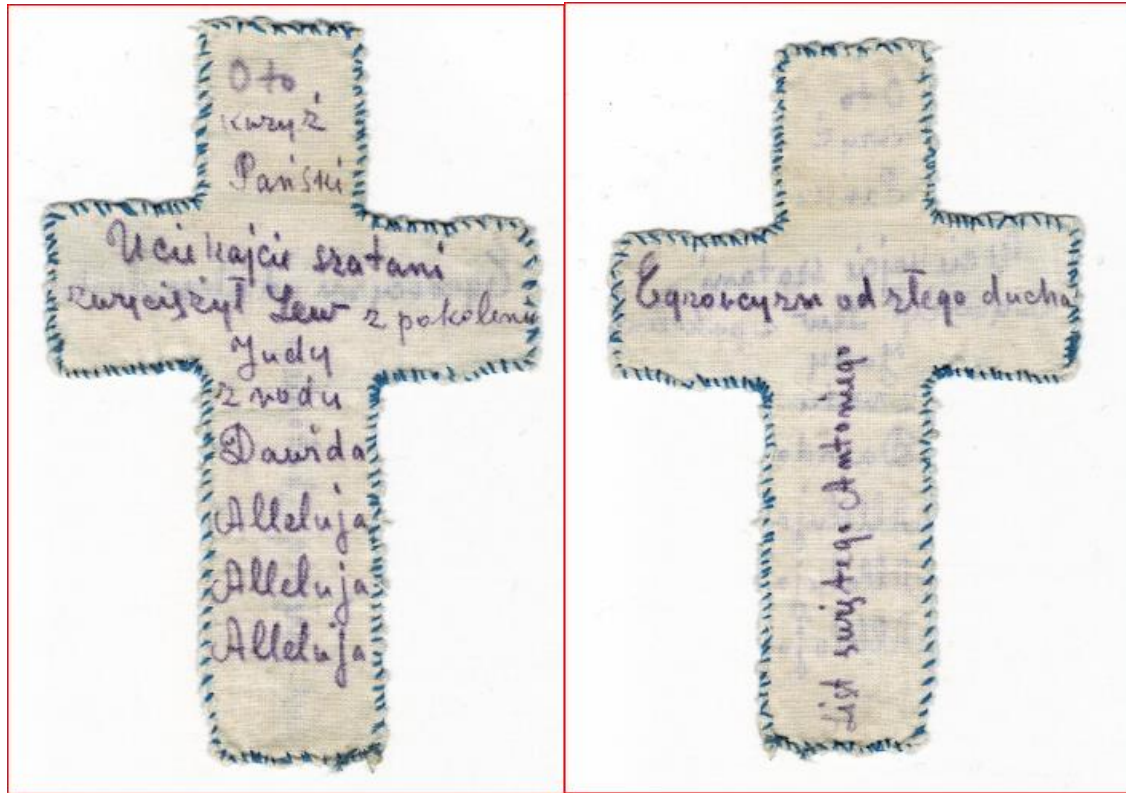 Oto
krzyż
Pański
Uciekajcie szatani
zwyciężył Lew z pokolenia
Judy
z rodu
Dawida
Alleluja
Alleluja
Alleluja
Egzorcyzm od złego ducha
List świętego Antoniego